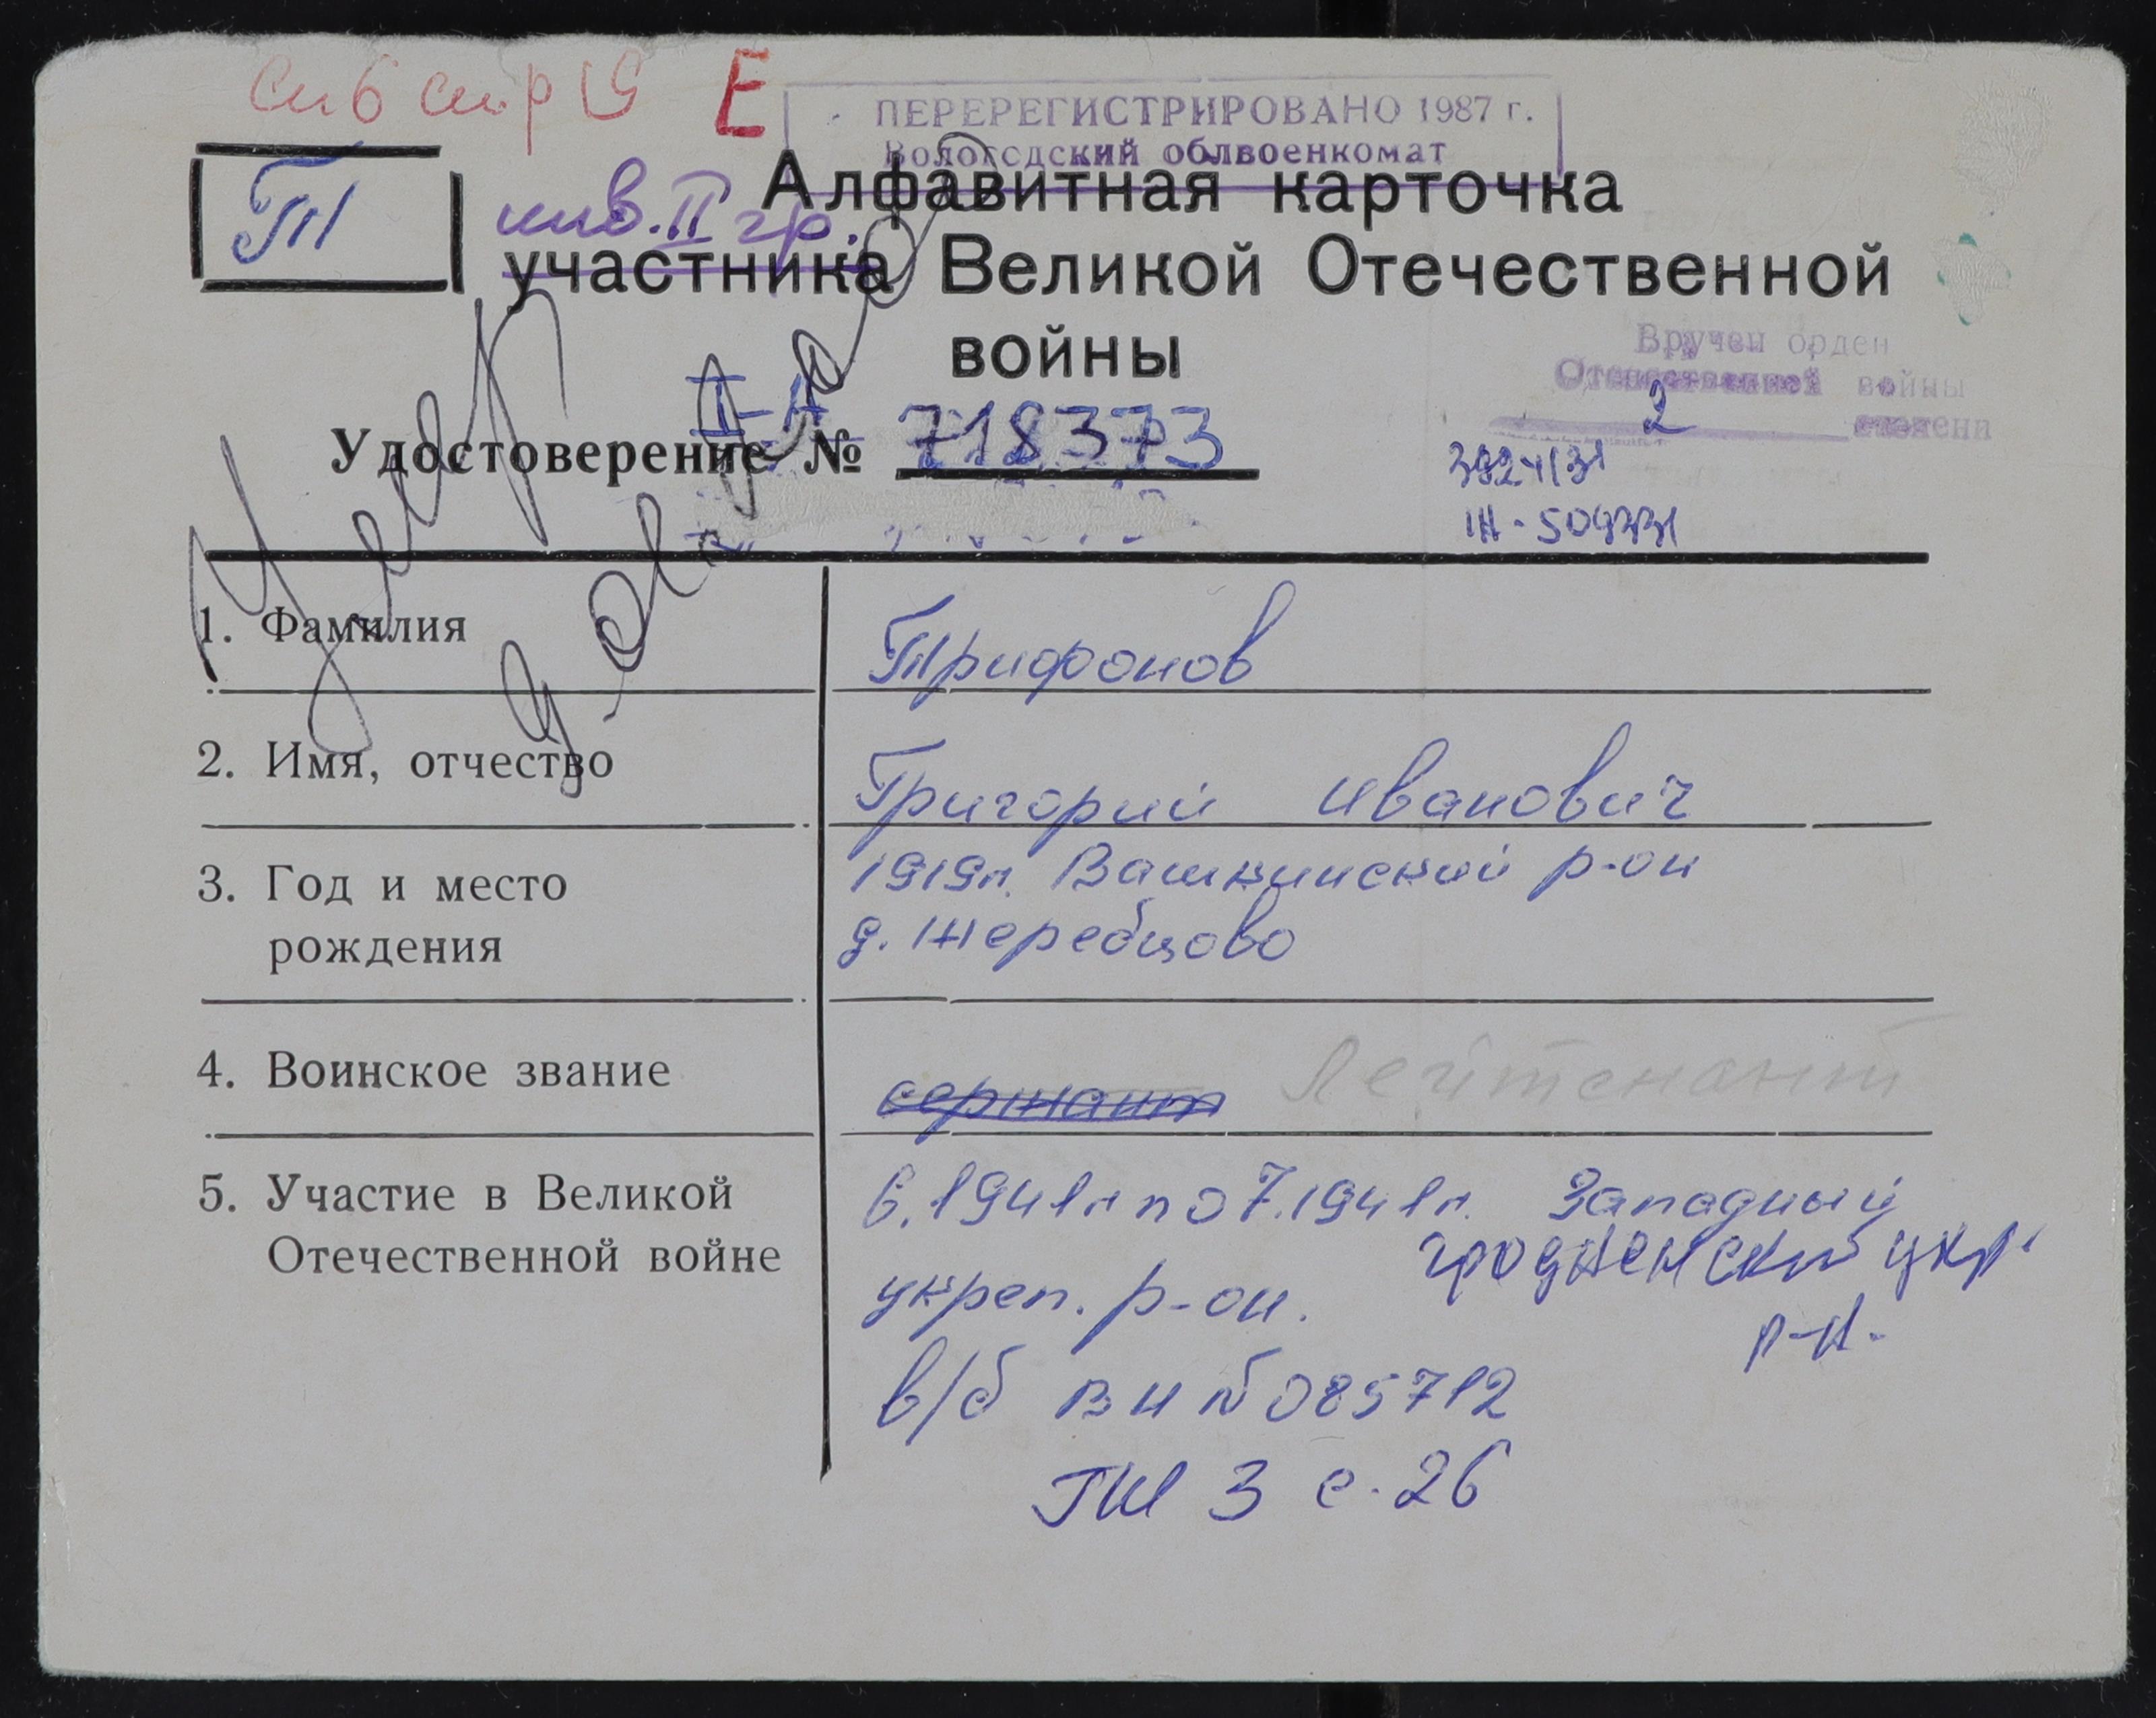 Е
ПЕРЕРЕГИСТРИРОВАНО 1987 г.
Вологодский облвоенкомат
Т
инв. II гр.
Алфавитная карточка
участника Великой Отечественной
войны
Вручен орден
Отечественной войны
2 степени
II-Н
Удостоверение № 718373
1. Фамилия
Трифонов
2. Имя, отчество
Григорий Иванович
3. Год и место
рождения
1919г. Вашкинский р-он
д. Жеребцово
4. Воинское звание
сержант Лейтенант
5. Участие в Великой
Отечественной войне
6.1941г по 7.1941г. Западный
гродненский укр.
укреп. р-он.
р-н.
в/б ВИ № 085712
ГШ 3 с. 26